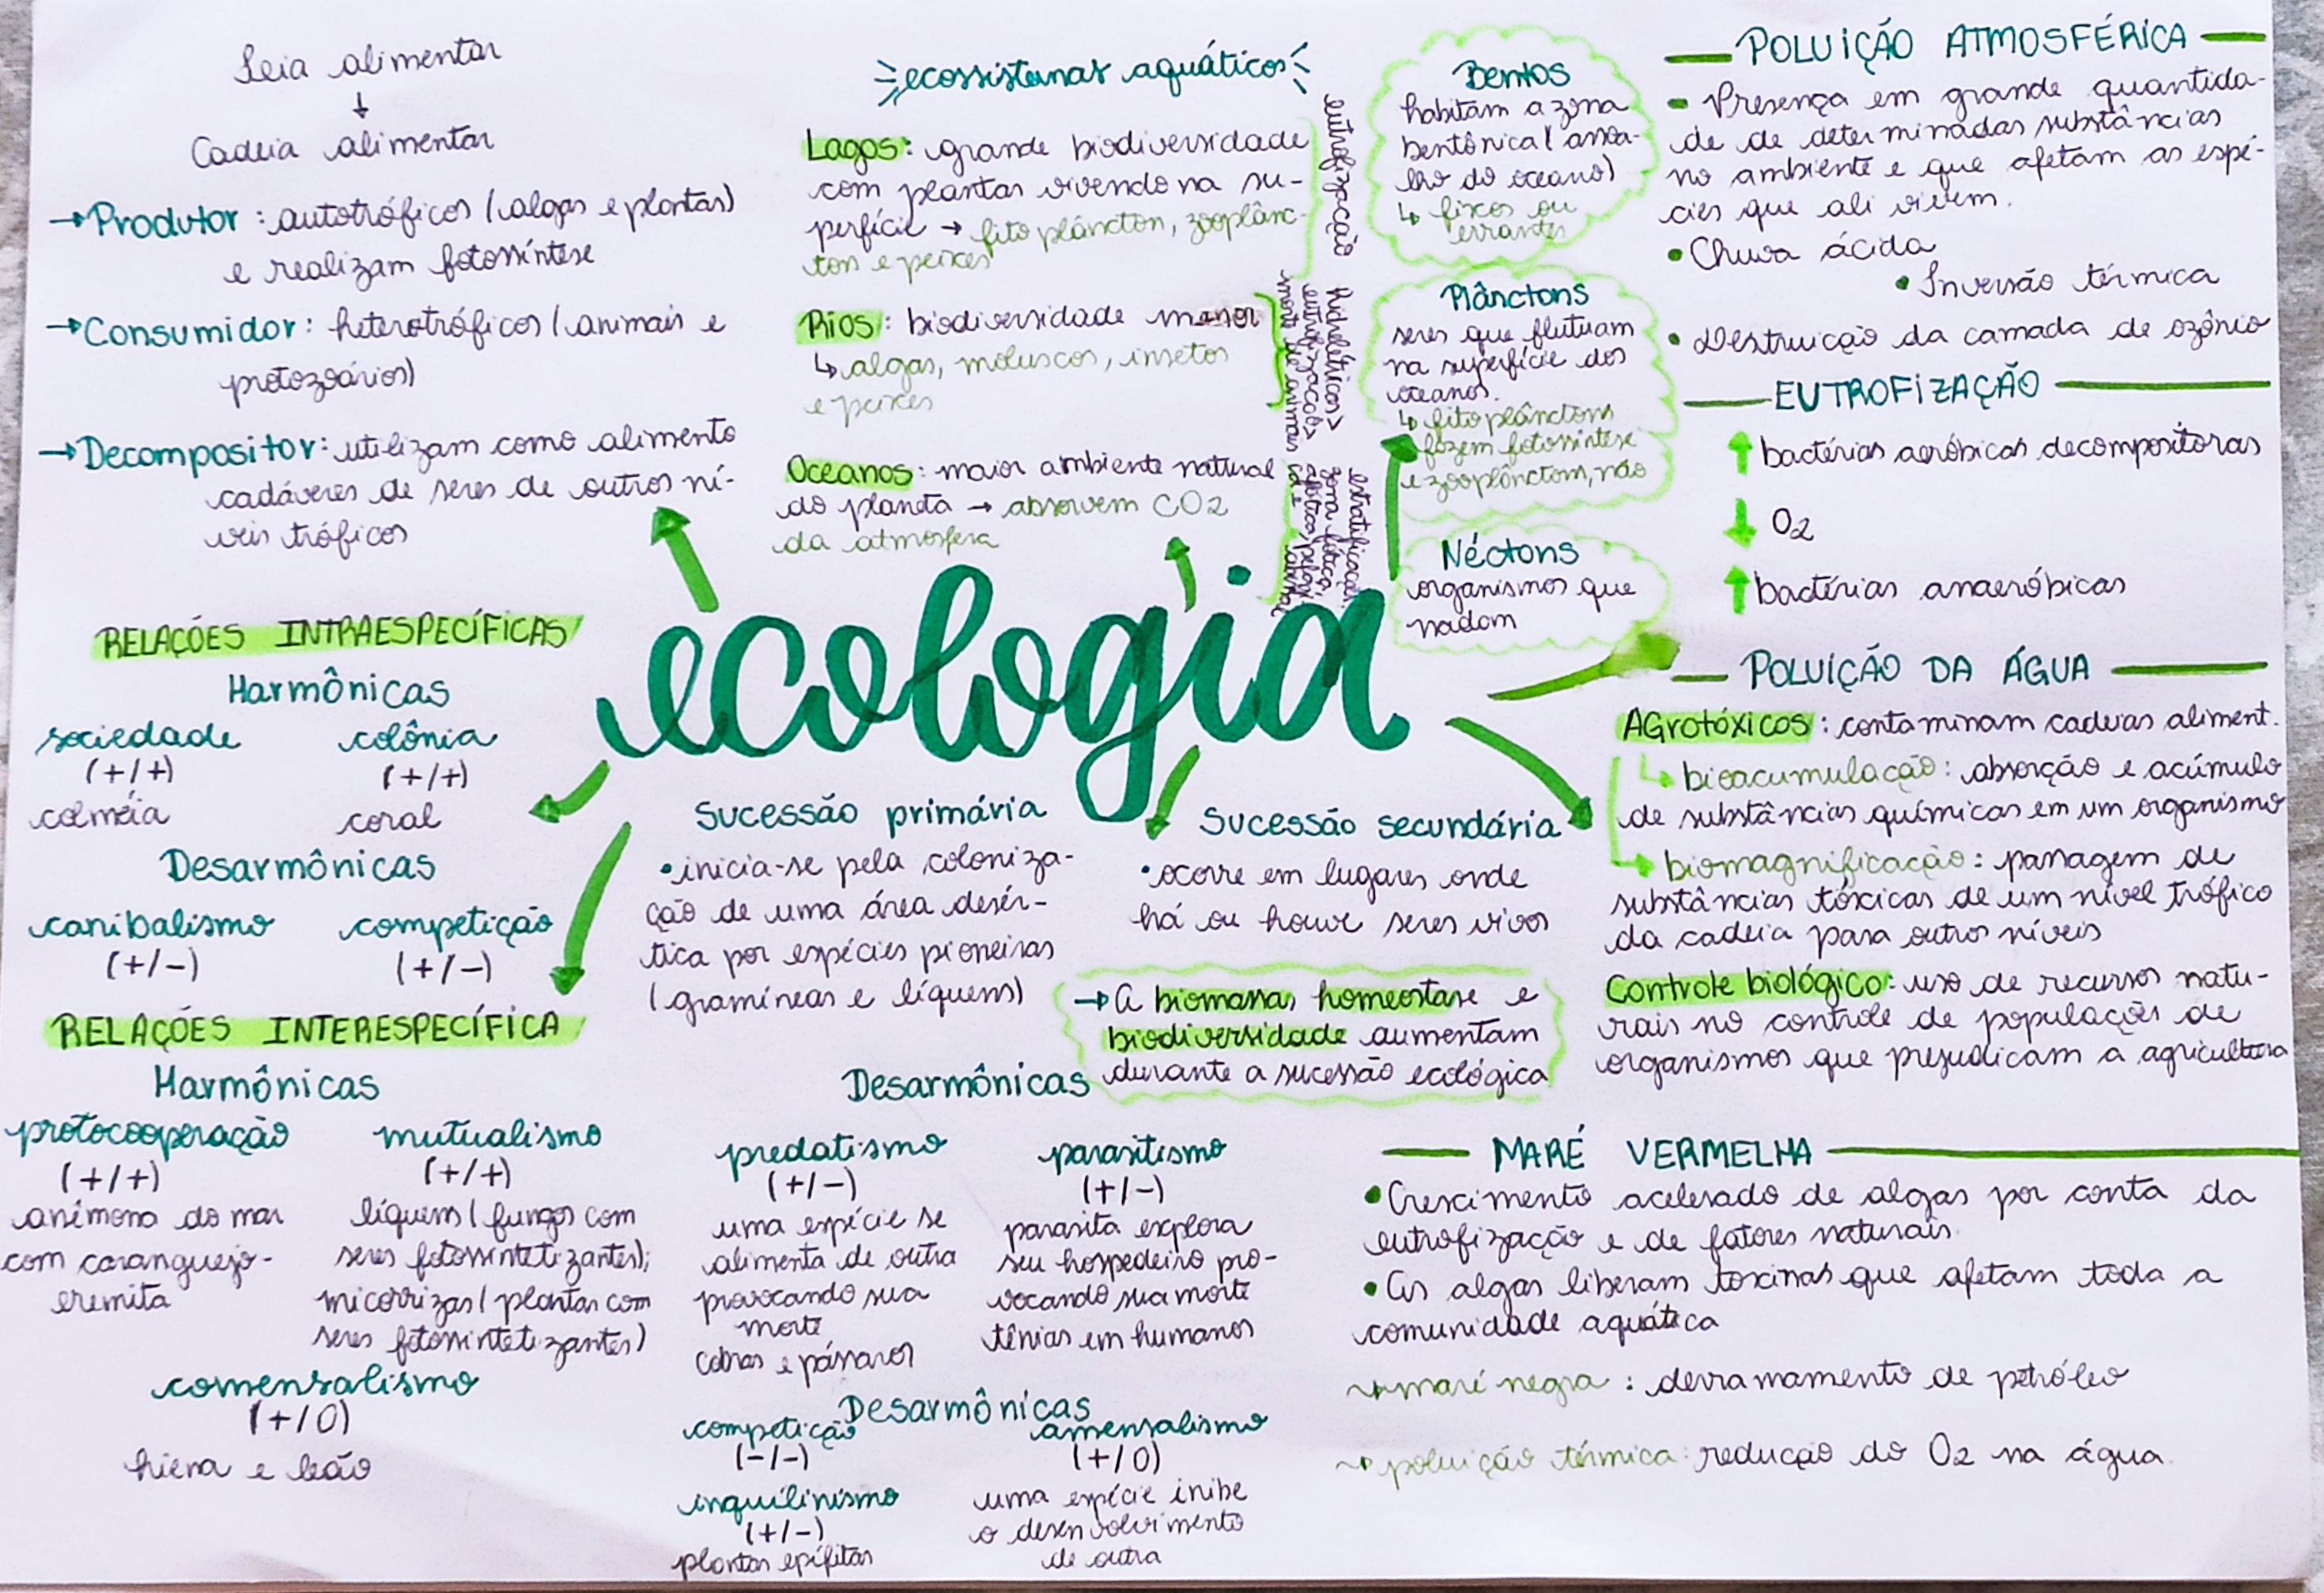 teia alimentar
Cadeia alimentar
→ Produtor: autotróficos (algas e plantas)
e realizam fotossíntese
→ Consumidor: heterotróficos (animais e
protozoários)
→ Decompositor: utilizam como alimento
cadáveres de seres de outros ní-
veis tróficos
ecossistemas aquáticos
Lagos: grande biodiversidade
com plantas vivendo na su-
perfície → fitoplâncton, zooplânc-
tons e peixes
Rios: biodiversidade menor
↳ algas, moluscos, insetos
e peixes
Oceanos: maior ambiente natural
do planeta → absorvem CO2
da atmosfera
eutrofização
hidrelétricas>
eutrofização>
morte de animais
estratificação:
zona fótica,
Bentos
habitam a zona
bentônica (assoa-
lho do oceano)
↳ fixos ou
errantes
Plânctons
seres que flutuam
na superfície dos
oceanos.
↳ fitoplânctons
fazem fotossíntese
e zooplânctom, não
Néctons
organismos que
nadam
POLUIÇÃO ATMOSFÉRICA
• Presença em grande quantida-
de de determinadas substâncias
no ambiente e que afetam as espé-
cies que ali vivem.
• Chuva ácida
• Inversão térmica
• Destruição da camada de ozônio
EUTROFIZAÇÃO
↑ bactérias aeróbicas decompositoras
↓ O2
↑ bactérias anaeróbicas
ecologia
POLUIÇÃO DA ÁGUA
AGrotóxicos: contaminam cadeias aliment.
↳ bioacumulação: absorção e acúmulo
de substâncias químicas em um organismo
↳ biomagnificação: passagem de
substâncias tóxicas de um nível trófico
da cadeia para outros níveis
Controle biológico: uso de recursos natu-
rais no controle de populações de
organismos que prejudicam a agricultura
RELAÇÕES INTRAESPECÍFICAS
Harmônicas
sociedade
(+/+)
colméia
colônia
(+/+)
coral
Desarmônicas
canibalismo
(+/-)
competição
(+/-)
Sucessão primária
• inicia-se pela coloniza-
ção de uma área desér-
tica por espécies pioneiras
(gramíneas e líquens)
Sucessão secundária
• ocorre em lugares onde
há ou houve seres vivos
→ A biomassa, homeostase e
biodiversidade aumentam
durante a sucessão ecológica
RELAÇÕES INTERESPECÍFICA
Harmônicas
protocooperação
(+/+)
anêmona do mar
com caranguejo-
eremita
mutualismo
(+/+)
líquens (fungos com
seres fotossintetizantes);
micorrizas (plantas com
seres fotossintetizantes)
comensalismo
(+/0)
hiena e leão
Desarmônicas
predatismo
(+/-)
uma espécie se
alimenta de outra
provocando sua
morte
cobras e pássaros
parasitismo
(+/-)
parasita explora
seu hospedeiro pro-
vocando sua morte
tênias em humanos
Desarmônicas
competição
(-/-)
inquilinismo
(+/-)
plantas epífitas
amensalismo
(+/0)
uma espécie inibe
o desenvolvimento
de outra
MARÉ VERMELHA
• Crescimento acelerado de algas por conta da
eutrofização e de fatores naturais.
• As algas liberam toxinas que afetam toda a
comunidade aquática
→ maré negra: derramamento de petróleo
→ poluição térmica: redução do O2 na água.